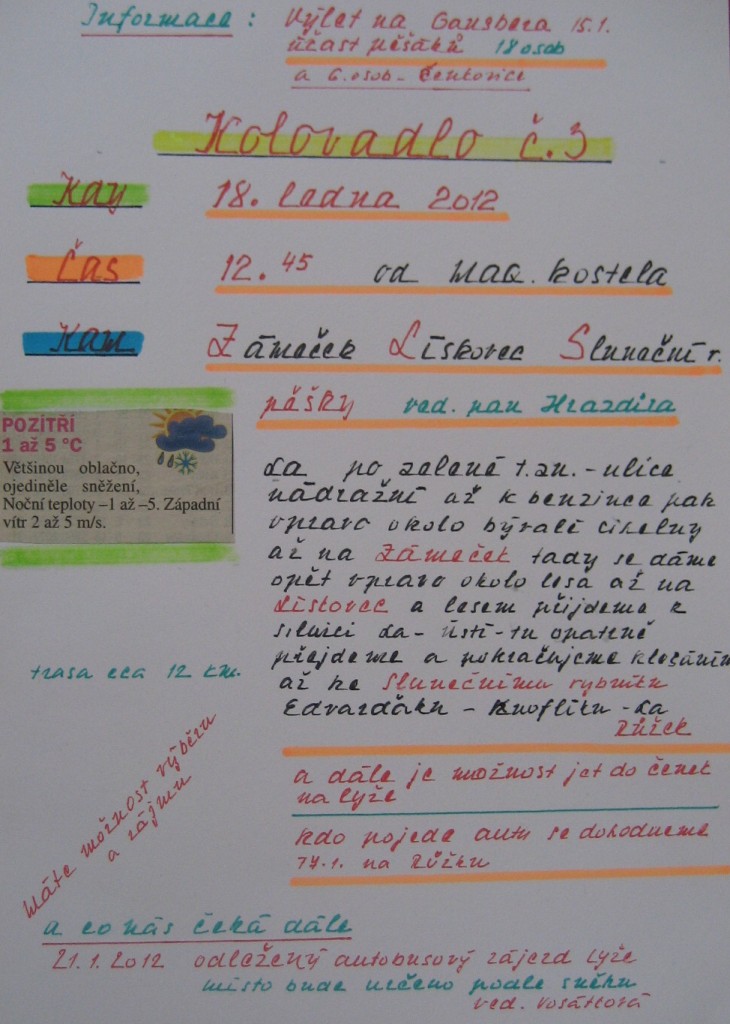 Informace : Výlet na Gansberg 15.1.
účast pěšáků 18 osob
a 6. osob - Čenkovice
Kolovadlo č. 3
Kdy 18. ledna 2012
Čas 12.45 od MAG. kostela
Kam Zámeček Lískovec Sluneční r.
pěšky ved. pan Hrazdira
POZÍTŘÍ
1 až 5 °C
Většinou oblačno,
ojediněle sněžení,
Noční teploty –1 až –5. Západní
vítr 2 až 5 m/s.
La po zelené t.zn. - ulice
nádražní až k benzince pak
vpravo okolo bývalé cihelny
až na Zámeček tady se dáme
opět vpravo okolo lesa až na
Lískovec a lesem přijdeme k
silnici La - Ústí - tu opatrně
přejdeme a pokračujeme klesáním
až ke Slunečnímu rybníku
Edvarďáku - Knoflíku - La
Růžek
trasa cca 12 km.
a dále je možnost jet do Čenek
na lyže
kdo pojede autu se dohodneme
17.1. na Růžku
máte možnost výběru
a zájmu
a co nás čeká dále
21.1.2012 odložený autobusový zájezd lyže
místo bude určeno podle sněhu
ved. Vosátková